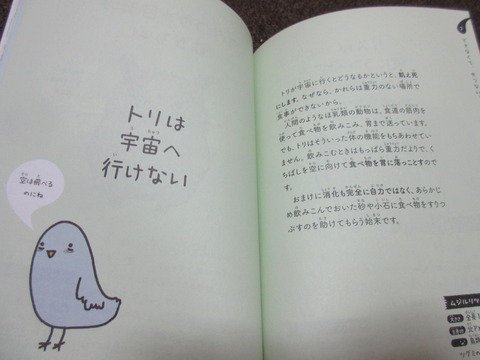 トリは
宇宙へ
行けない
空は飛べる
のにね
トリが宇宙に行くとどうなるかというと、飢え死
にします。なぜなら、かれらは重力のない場所で
食事ができないから。
人間のようなほ乳類の動物は、食道の筋肉を
使って食べ物を飲みこみ、胃まで送っています。
でも、トリはそういった体の機能をもちあわせてい
ません。飲みこむときはもっぱら重力だよりで、く
ちばしを空に向けて食べ物を胃に落っことすのです。
おまけに消化も完全に自力ではなく、あらかじ
め飲みこんでおいた砂や小石に食べ物をすりつ
ぶすのを助けてもらう始末です。
ムジルリツ